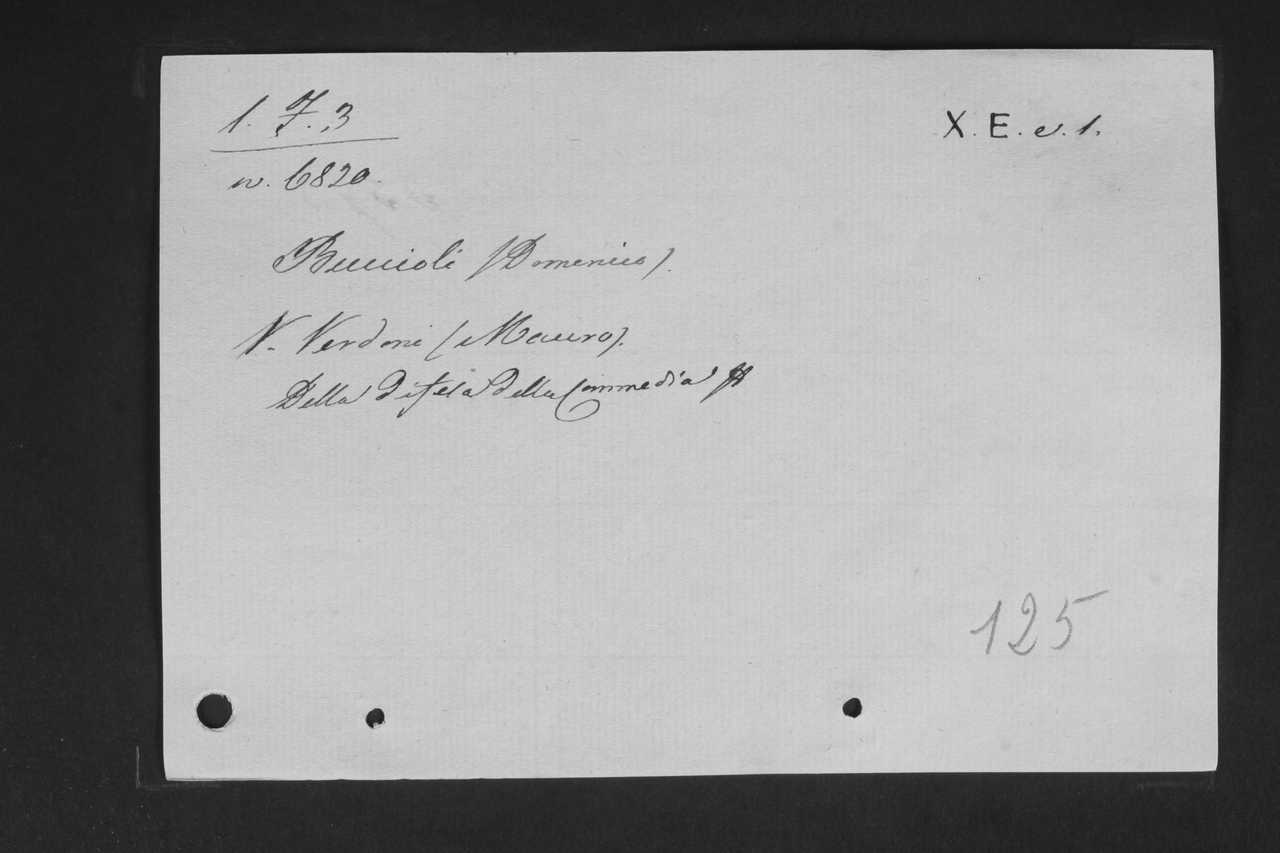 1. F. 3
X. E. v. 1.
n. 6820.
Buccioli (Domenico).
V. Verdoni (Mauro).
Della difesa della Commedia
125